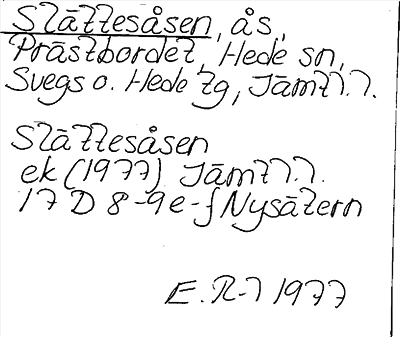 Slättesåsen, ås,
Prästbordet, Hede sn,
Svegs o. Hede tg, Jämtl. l.
Slättesåsen
ek (1977) Jämtl. l.
17 D 8-9 e-f Nysätern
E. R-l 1977